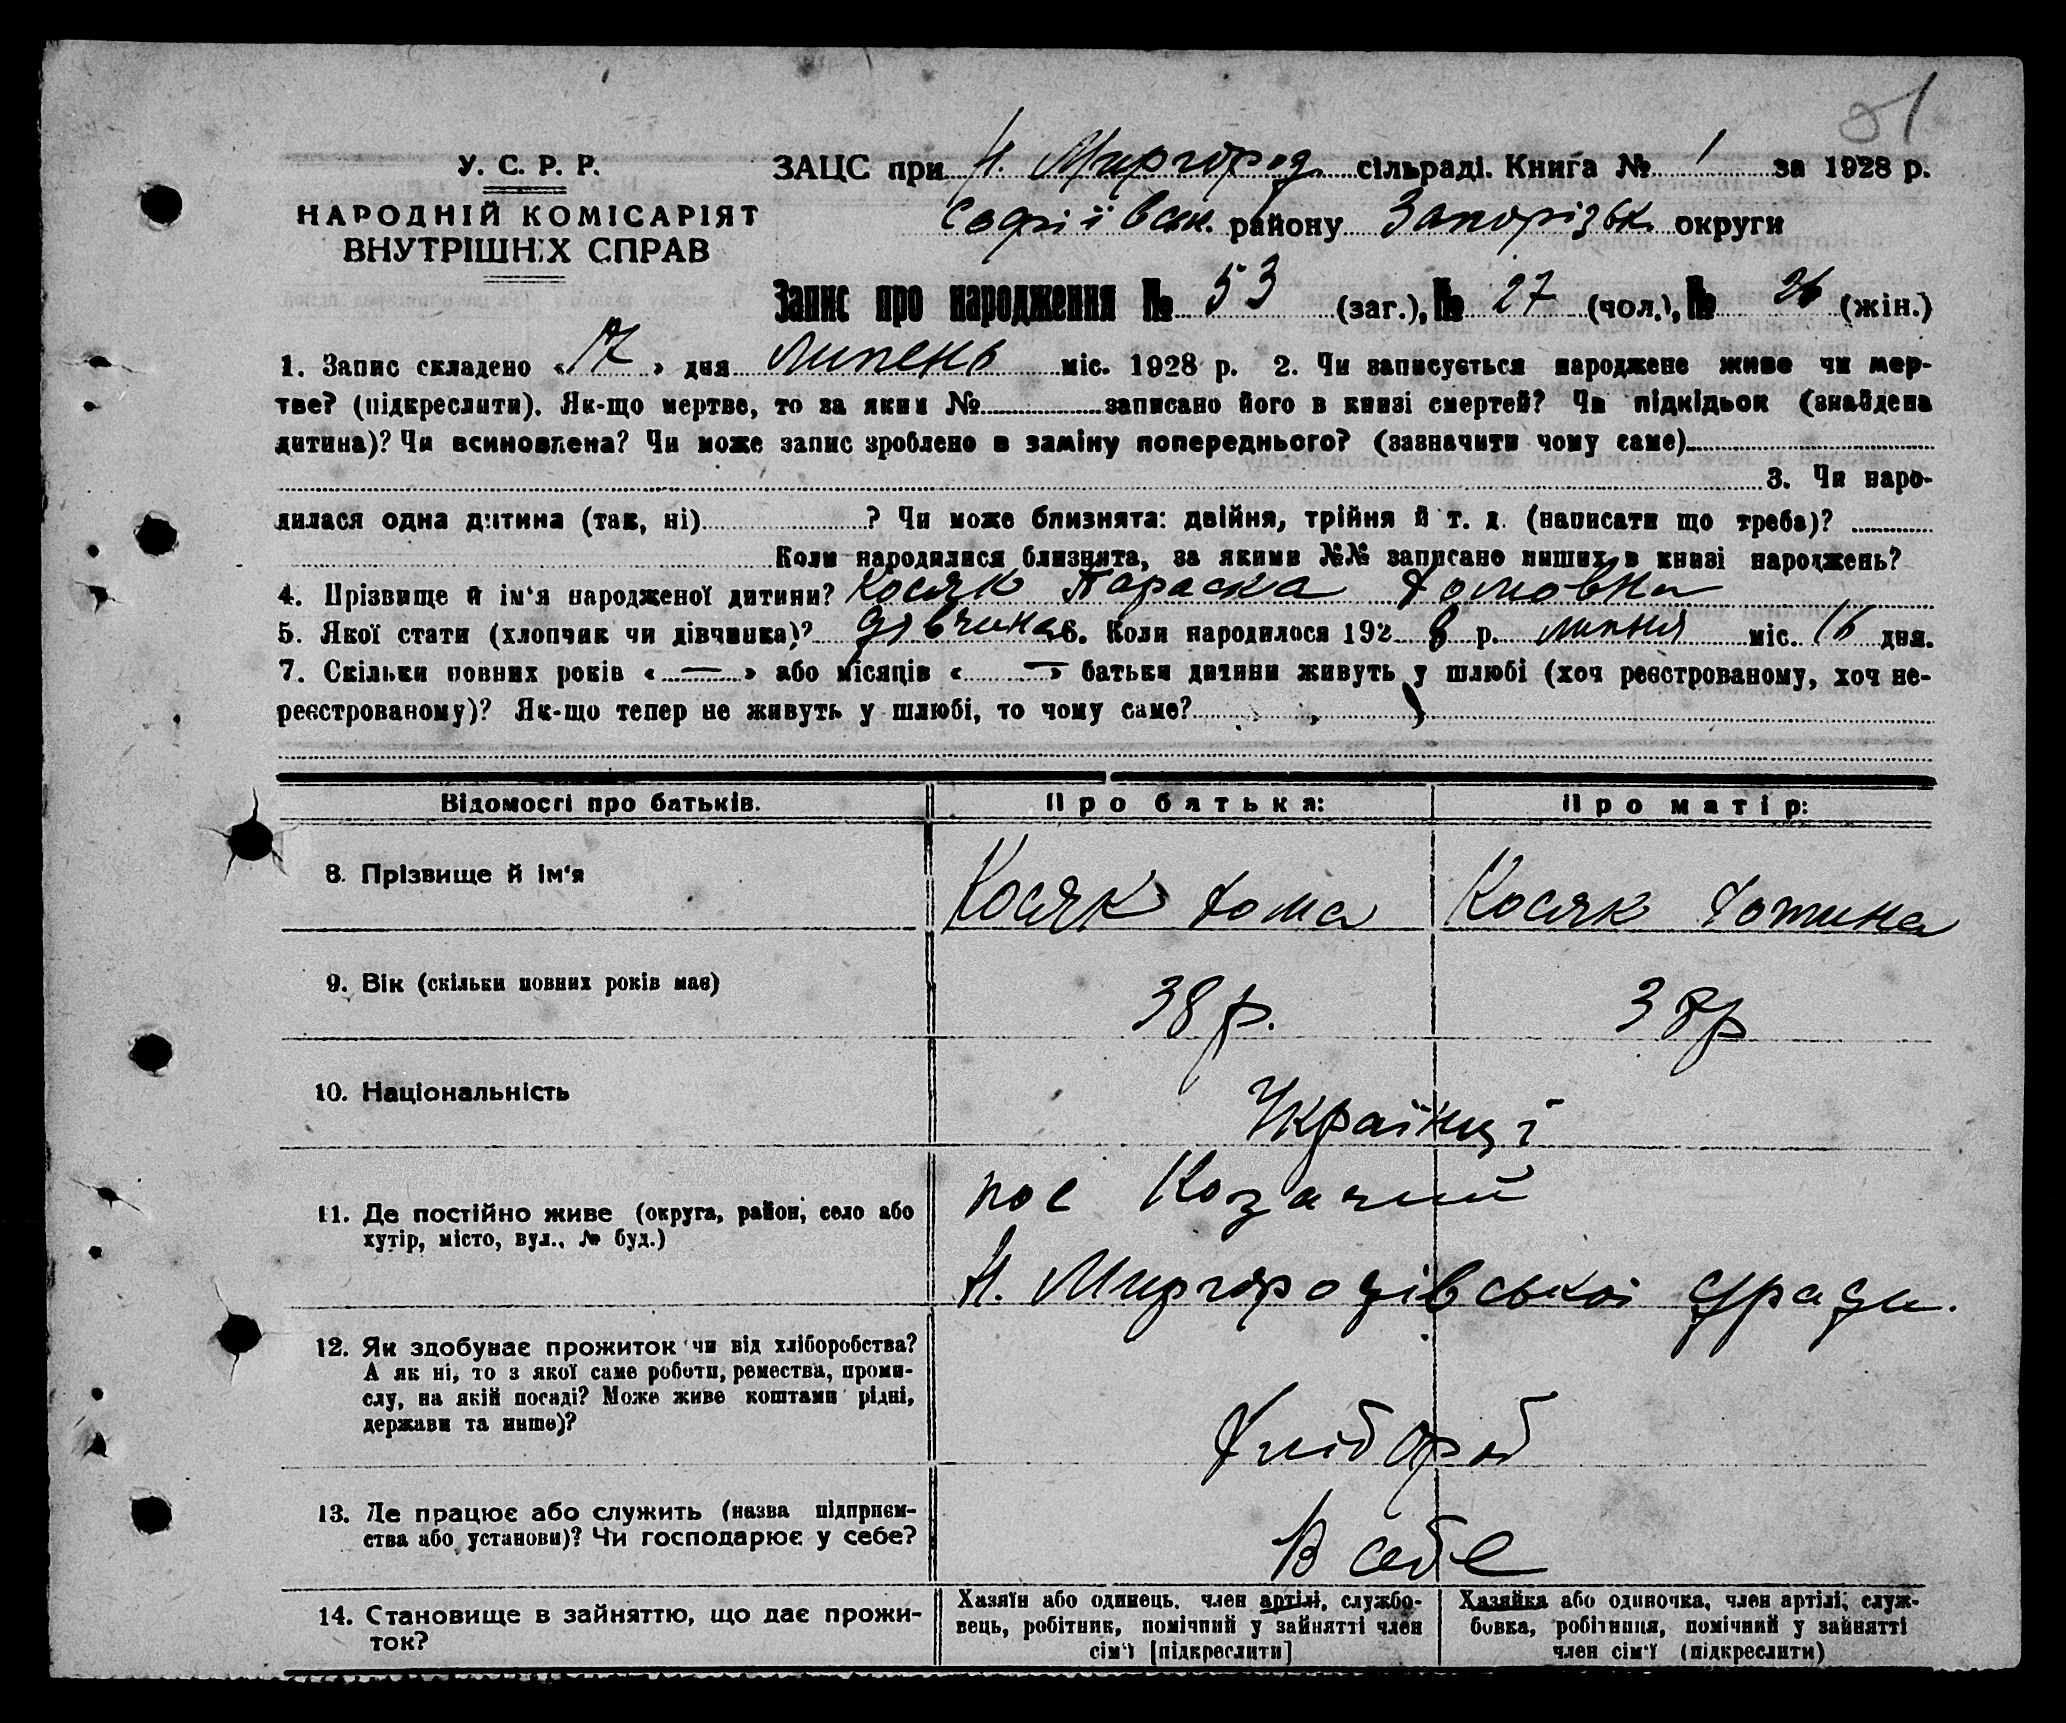 51
У. С. Р. Р.
НАРОДНІЙ КОМІСАРІЯТ
ВНУТРІШНІХ СПРАВ
ЗАЦС при Н. Миргород сільраді. Книга № 1 за 1928 р.
Софіївськ. району Запорізьк округи
Запис про народження № 53 (заг.), № 27 (чол.), № 26 (жін.)
1. Запис складено «17» дня липень міс. 1928 р. 2. Чи записується народжене живе чи мер-
тве? (підкреслити). Як-що мертве, то за яким № записано його в книзі смертей? Чи підкідьок (знайдена
дитина)? Чи всиновлена? Чи може запис зроблено в заміну попереднього? (зазначити чому саме)
3. Чи наро-
дилася одна дитина (так, ні) ? Чи може близнята: двійня, трійня й т. д. (написати що треба)?
Коли народилися близнята, за якими №№ записано инших в книзі народжень?
4. Прізвище й ім'я народженої дитини? Косяк Параска Хомовна
5. Якої стати (хлопчик чи дівчинка)? дівчина 6. Коли народилося 1928 р. липня міс. 16 дня.
7. Скільки повних років « — » або місяців « — » батьки дитини живуть у шлюбі (хоч реєстрованому, хоч не-
реєстрованому)? Як-що тепер не живуть у шлюбі, то чому саме?
Відомості про батьків. Про батька: Про матір:
8. Прізвище й ім'я Косяк Хома Косяк Хотина
9. Вік (скільки повних років має) 38 р. 38 р
10. Національність Українці
11. Де постійно живе (округа, район, село або
хутір, місто, вул., № буд.)
пос Козачий
Н. Миргородівської с/ради.
12. Як здобуває прожиток чи від хліборобства?
А як ні, то з якої саме роботи, ремества, проми-
слу, на якій посаді? Може живе коштами рідні,
держави та инше)?
Хлібороб
13. Де працює або служить (назва підприєм-
ства або установи)? Чи господарює у себе?
В себе
14. Становище в зайняттю, що дає прожи-
ток?
Хазяїн або одинець, член артілі, службо-
вець, робітник, помічний у зайнятті член
сім'ї [підкреслити]
Хазяйка або одиночка, член артілі, служ-
бовка, робітниця, помічний у зайнятті
член сім'ї (підкреслити)